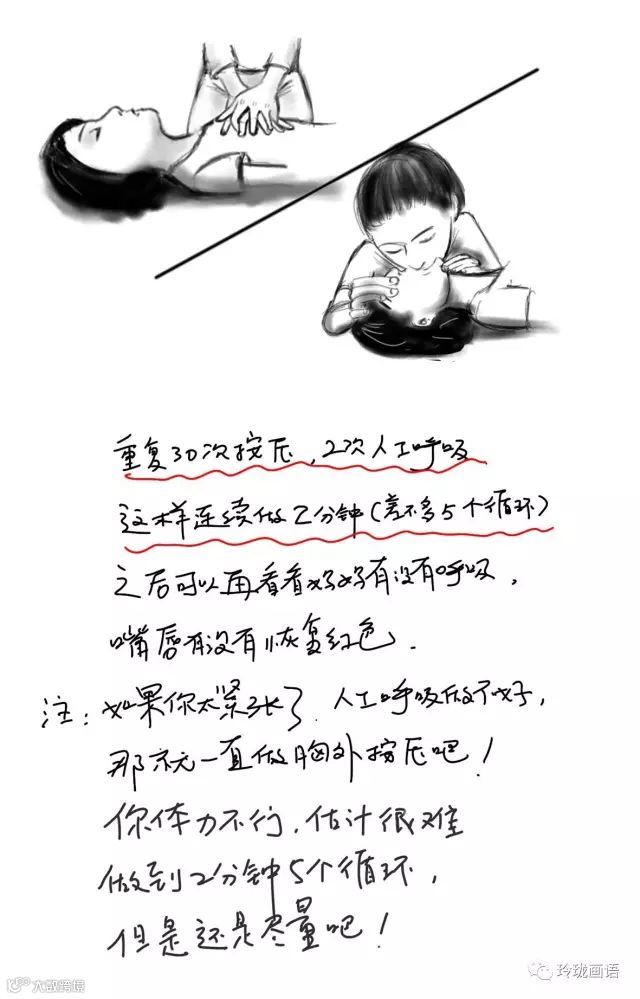 重复30次按压，2次人工呼吸
这样连续做2分钟(差不多5个循环)
之后可以再看看妈妈有没有呼吸，
嘴唇有没有恢复红色．
注：如果你太紧张了．人工呼吸做不好，
那就一直做胸外按压吧！
你体力不行，估计很难
做到2分钟5个循环，
但是还是尽量吧！
大数跨境
玲珑画语